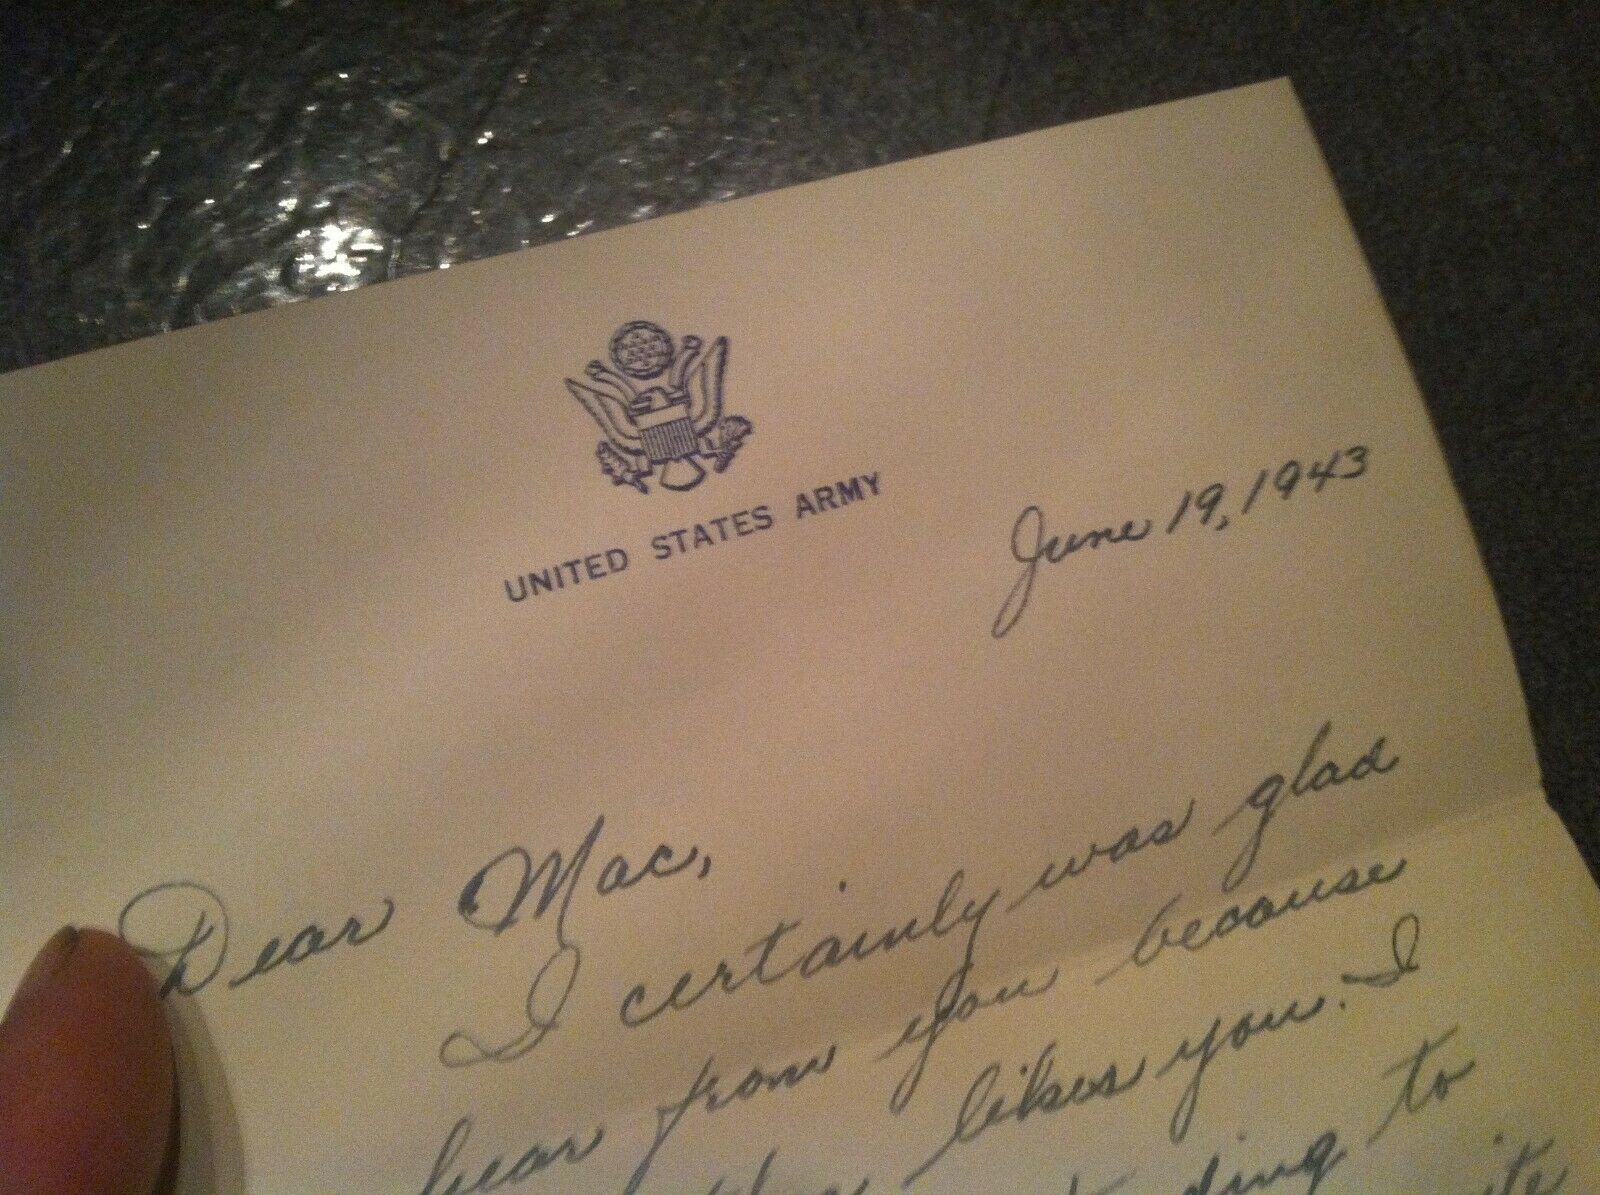 UNITED STATES ARMY
June 19, 1943
Dear Mac,
I certainly was glad
hear from you because
likes you. I
to